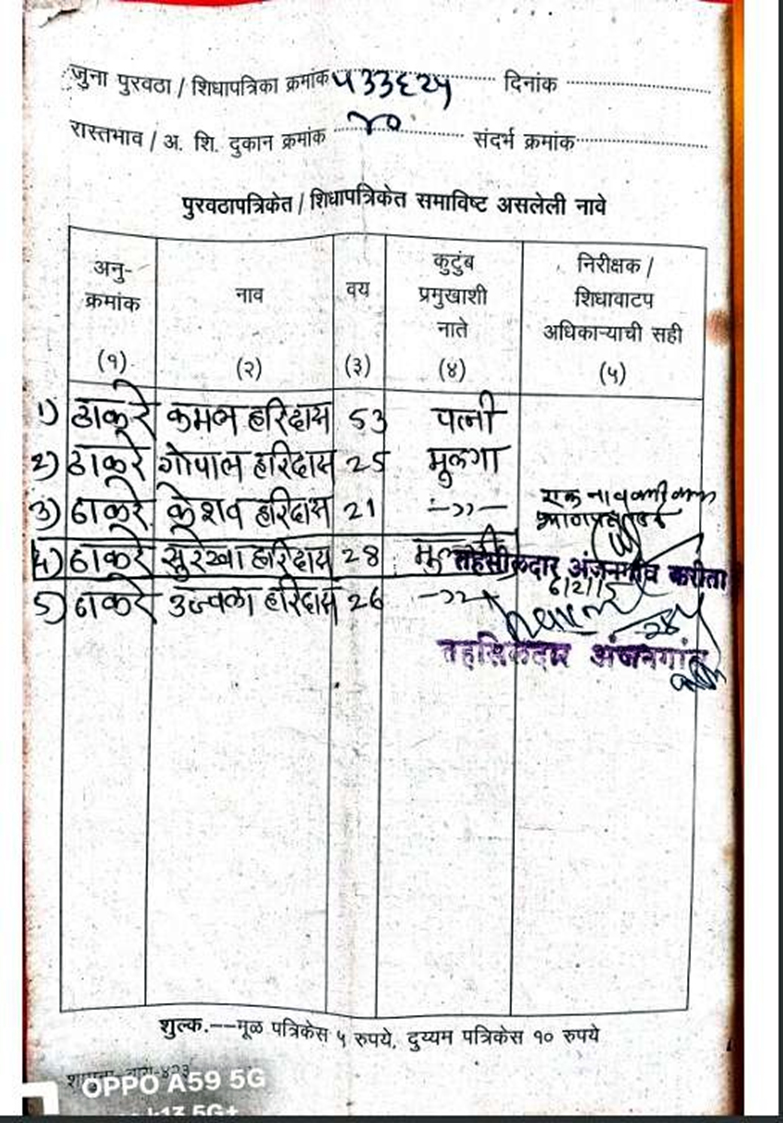 जुना पुरवठा / शिधापत्रिका क्रमांक ५३३६२५ दिनांक
रास्तभाव / अ. शि. दुकान क्रमांक ४० संदर्भ क्रमांक
पुरवठापत्रिकेत / शिधापत्रिकेत समाविष्ट असलेली नावे
अनु-क्रमांक नाव वय कुटुंब प्रमुखाशी नाते निरीक्षक / शिधावाटप अधिकाऱ्याची सही
(१) (२) (३) (४) (५)
1) ठाकरे कमल हरिदास 53 पत्नी
2) ठाकरे गोपाल हरिदास 25 मुलगा
3) ठाकरे केशव हरिदास 21 -,,-
एक नाव कमी
4) ठाकरे सुरेखा हरिदास 28
तहसीलदार अंजनगांव करीता
6/2/15
5) ठाकरे उज्वला हरिदास 26 -,,-
तहसिलदार अंजनगांव
शुल्क.--मूळ पत्रिकेस ५ रुपये, दुय्यम पत्रिकेस १० रुपये
OPPO A59 5G